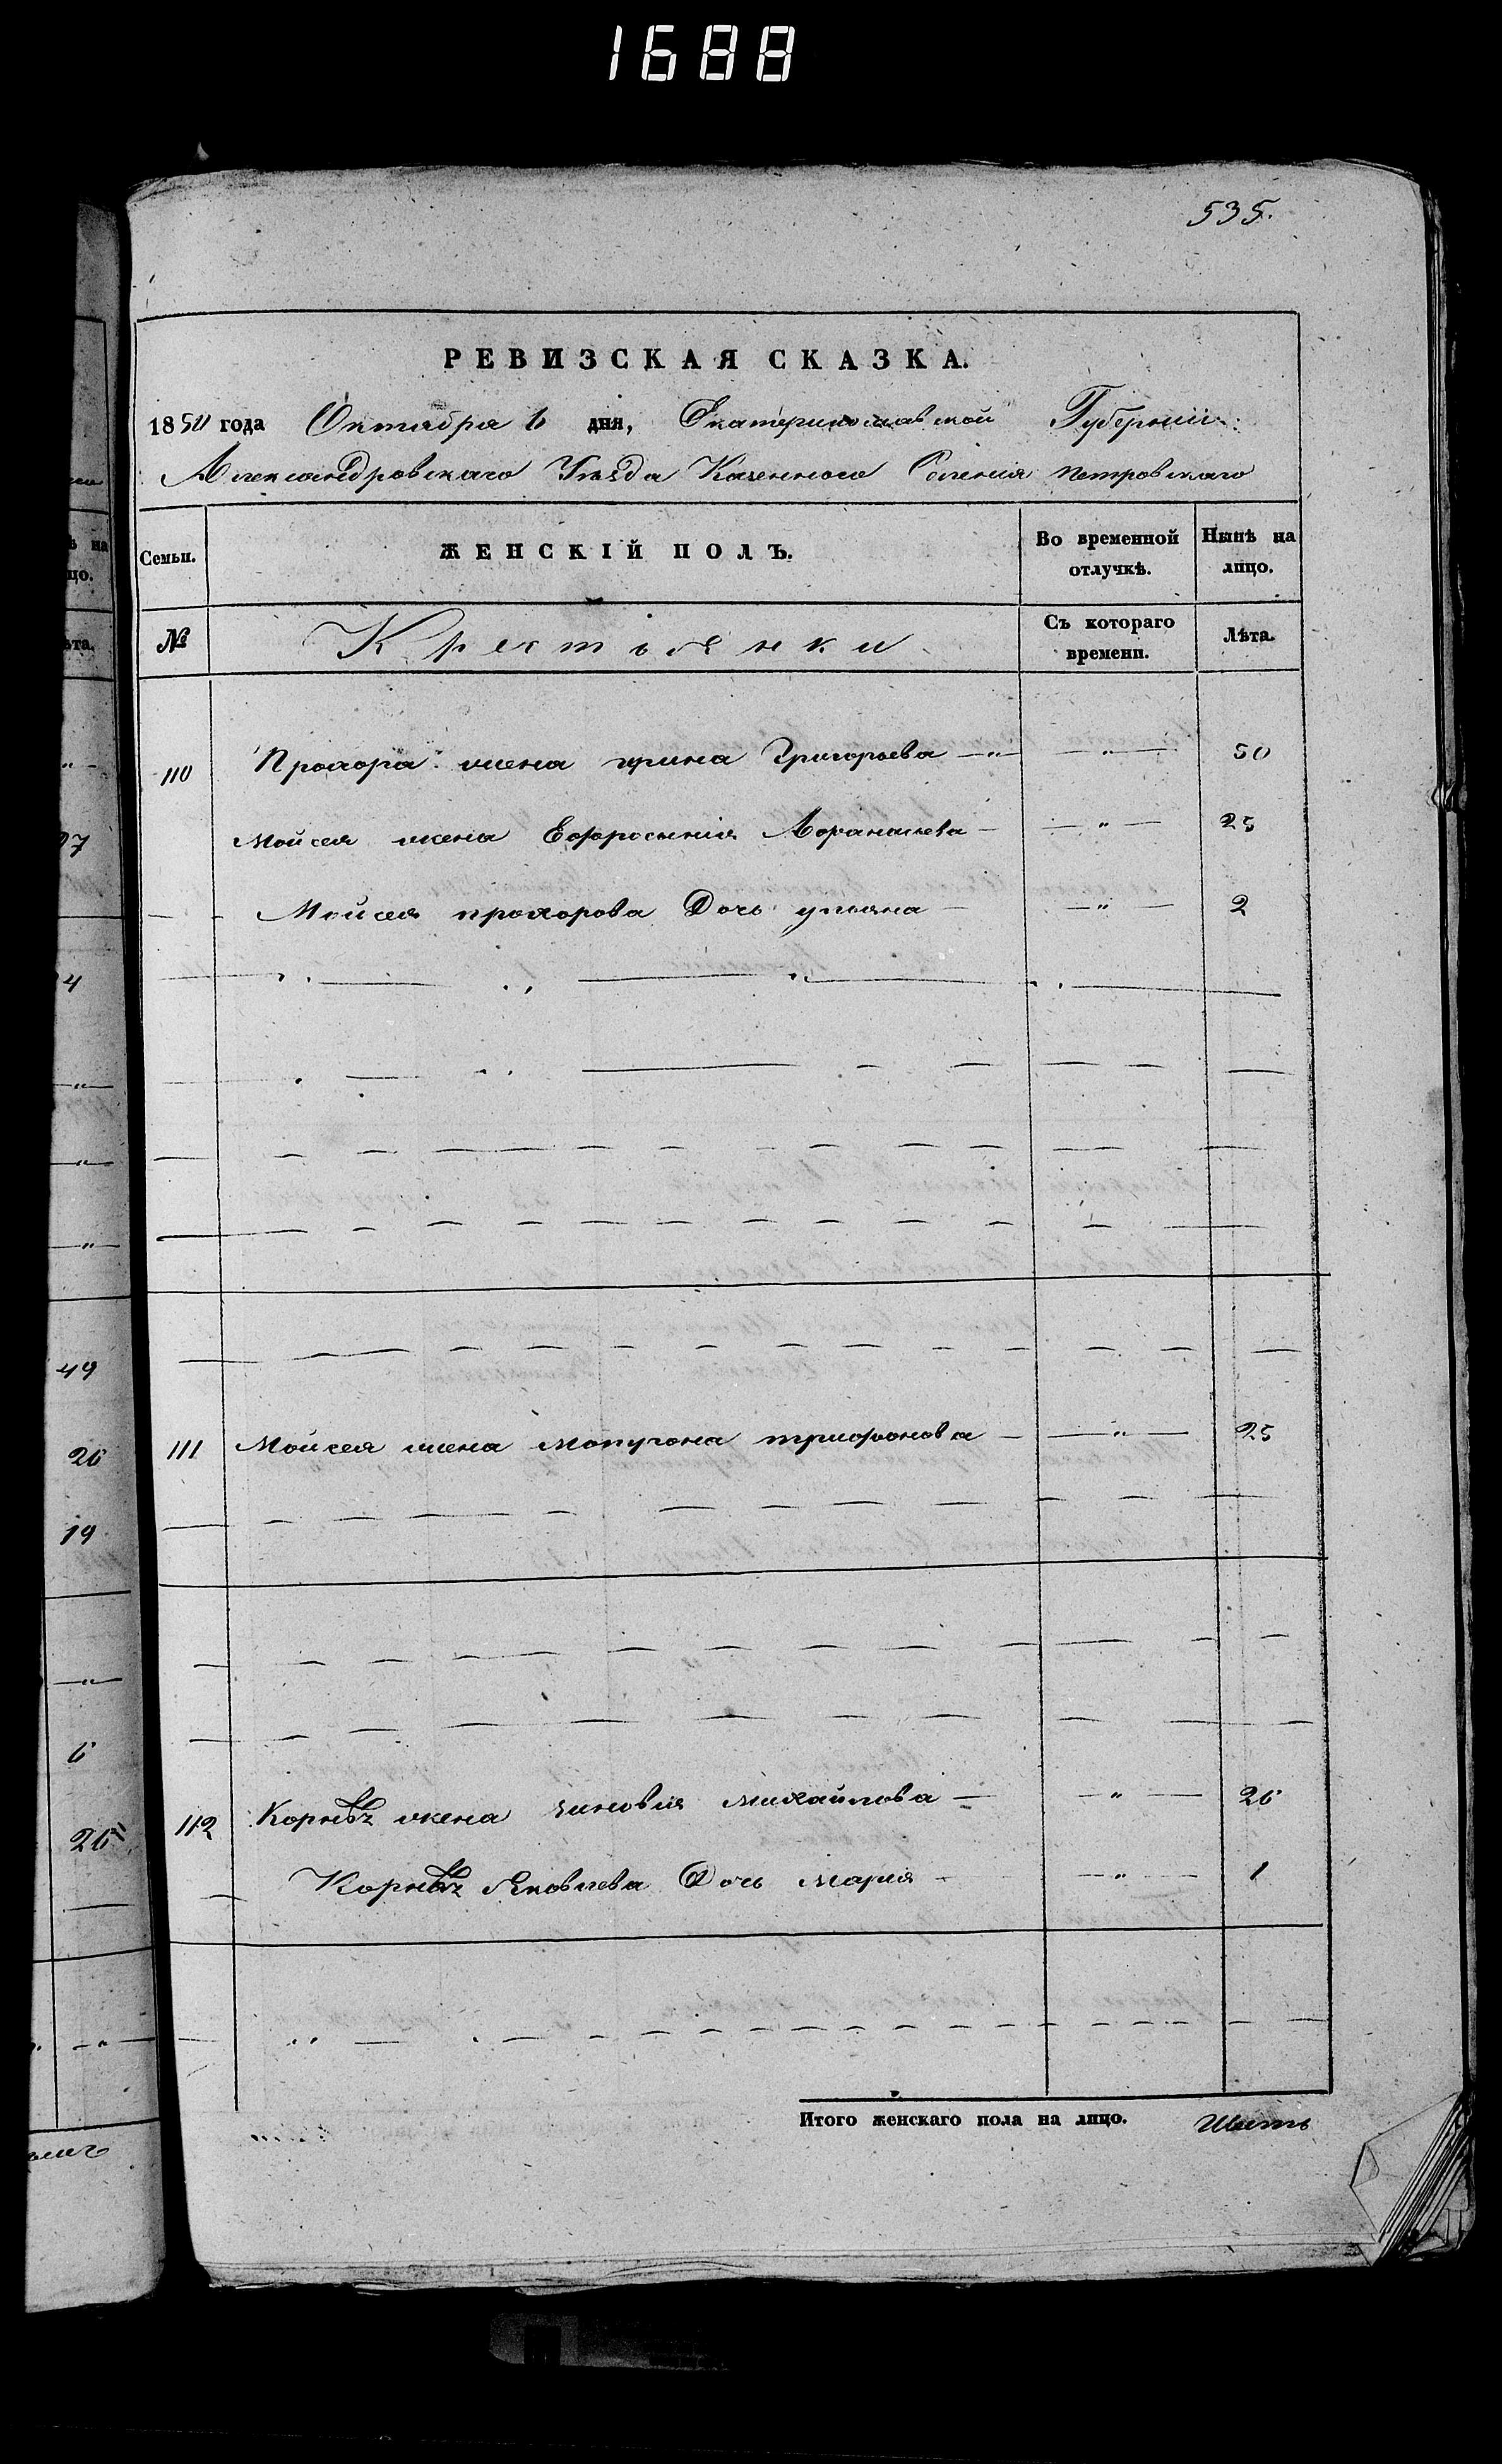 1688
535.
РЕВИЗСКАЯ СКАЗКА.
1850 года Октября 6 дня, Екатеринославской Губернiи
Александровскаго Уѣзда Казеннаго Селенiя петровскаго
Семьи. ЖЕНСКIЙ ПОЛЪ. Во временной отлучкѣ. Нынѣ на лицо.
№ Крестьянки Съ котораго времени. Лѣта.
110 Прохора жена ирина Григорьева — " — 50
Мойсея жена Ефросинiя Афанасьева — " — 25
Мойсея прохорова Дочь ульяна — " — 2
111 Мойсея жена трифонова — " — 25
112 Корнѣя жена зиновiя михайлова — " — 26
Корнѣя Яковлева Дочь марiя — " — 1
Итого женскаго пола на лицо. Шесть
27
4
49
26
19
6
26